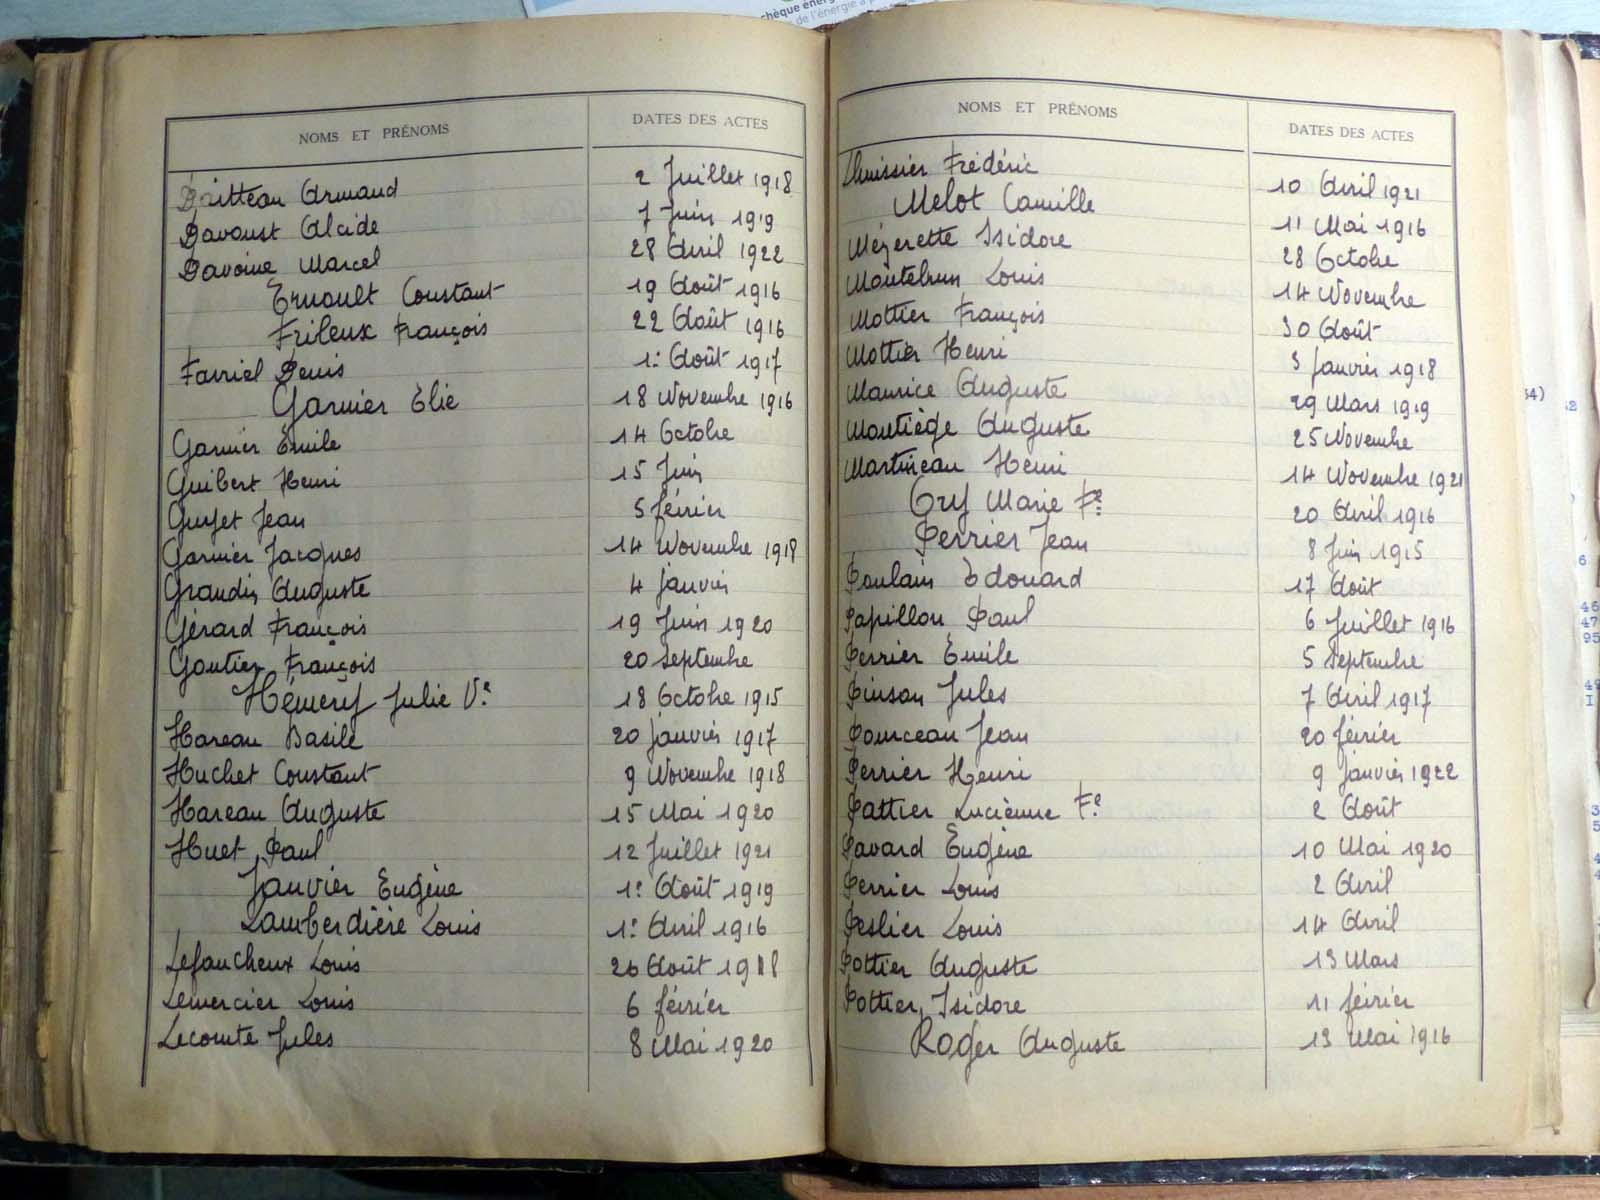 chèque énerg
de l'énergie a p
NOMS ET PRÉNOMS DATES DES ACTES
Daitteau Armand 2 Juillet 1918
Davoust Alcide 7 Juin 1919
Davoine Marcel 28 Avril 1922
Ernoult Constant 19 Août 1916
Frileux François 22 Août 1916
Farriel Denis 1: Août 1917
Garnier Elie 18 Novembre 1916
Garnier Émile 14 Octobre
Guibert Henri 15 Juin
Guyet Jean 5 février
Garnier Jacques 14 Novembre 1918
Grandin Auguste 4 janvier
Gérard François 19 Juin 1920
Gautier François 20 Septembre
Hemery Julie Ve 18 Octobre 1915
Hareau Basile 20 janvier 1917
Huchet Constant 9 Novembre 1918
Hareau Auguste 15 Mai 1920
Huet Paul 12 Juillet 1921
Janvier Eugène 1: Août 1919
Lamberdière Louis 1: Avril 1916
Lefaucheux Louis 26 Août 1918
Lemercier Louis 6 février
Lecomte Jules 8 Mai 1920
NOMS ET PRÉNOMS DATES DES ACTES
Lhuissier Frédéric 10 Avril 1921
Melot Camille 11 Mai 1916
Mézerette Isidore 28 Octobre
Montebrun Louis 14 Novembre
Mottier François 30 Août
Mottier Henri 3 Janvier 1918
Maurice Auguste 29 Mars 1919
Moutiège Auguste 25 Novembre
Martineau Henri 14 Novembre 1921
Ory Marie Fe 20 Avril 1916
Perrier Jean 8 Juin 1915
Poulain Edouard 17 Août
Papillon Paul 6 Juillet 1916
Perrier Emile 5 Septembre
Pinson Jules 7 Avril 1917
Pourceau Jean 20 février
Perrier Henri 9 janvier 1922
Pattier Lucienne Fe 2 Août
Pavard Eugène 10 Mai 1920
Perrier Louis 2 Avril
Peslier Louis 14 Avril
Pottier Auguste 13 Mars
Pottier Isidore 11 février
Roger Auguste 13 Mai 1916